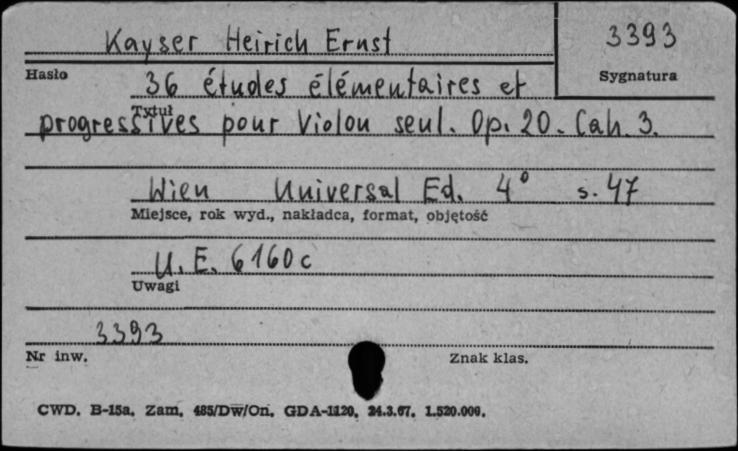 Kayser Heirich Ernst
3393
Hasło
Sygnatura
36 études élémentaires et
Tytuł
progressives pour Violon seul. Op. 20. Cah. 3.
Wien Universal Ed. 4° s. 47
Miejsce, rok wyd., nakładca, format, objętość
U. E. 6160c
Uwagi
3393
Nr inw.
Znak klas.
CWD. B-15a, Zam. 485/Dw/On. GDA-1120, 24.3.67. 1.520.000.